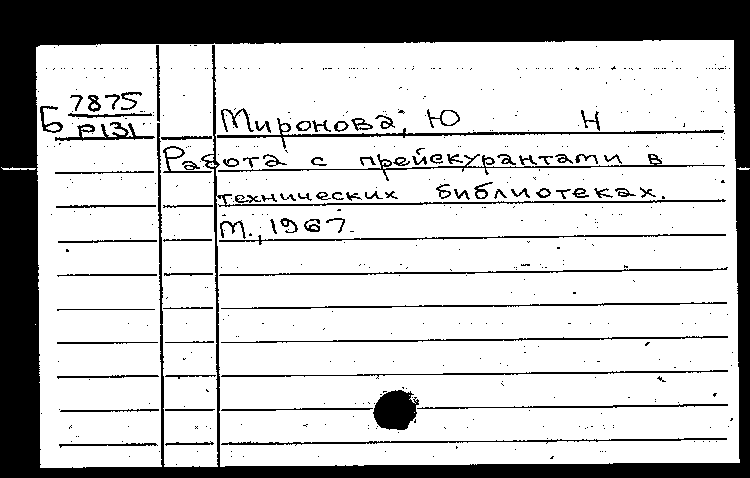 Б 7875
Р131
Миронова, Ю Н
Работа с прейскурантами в
технических библиотеках.
М., 1967.